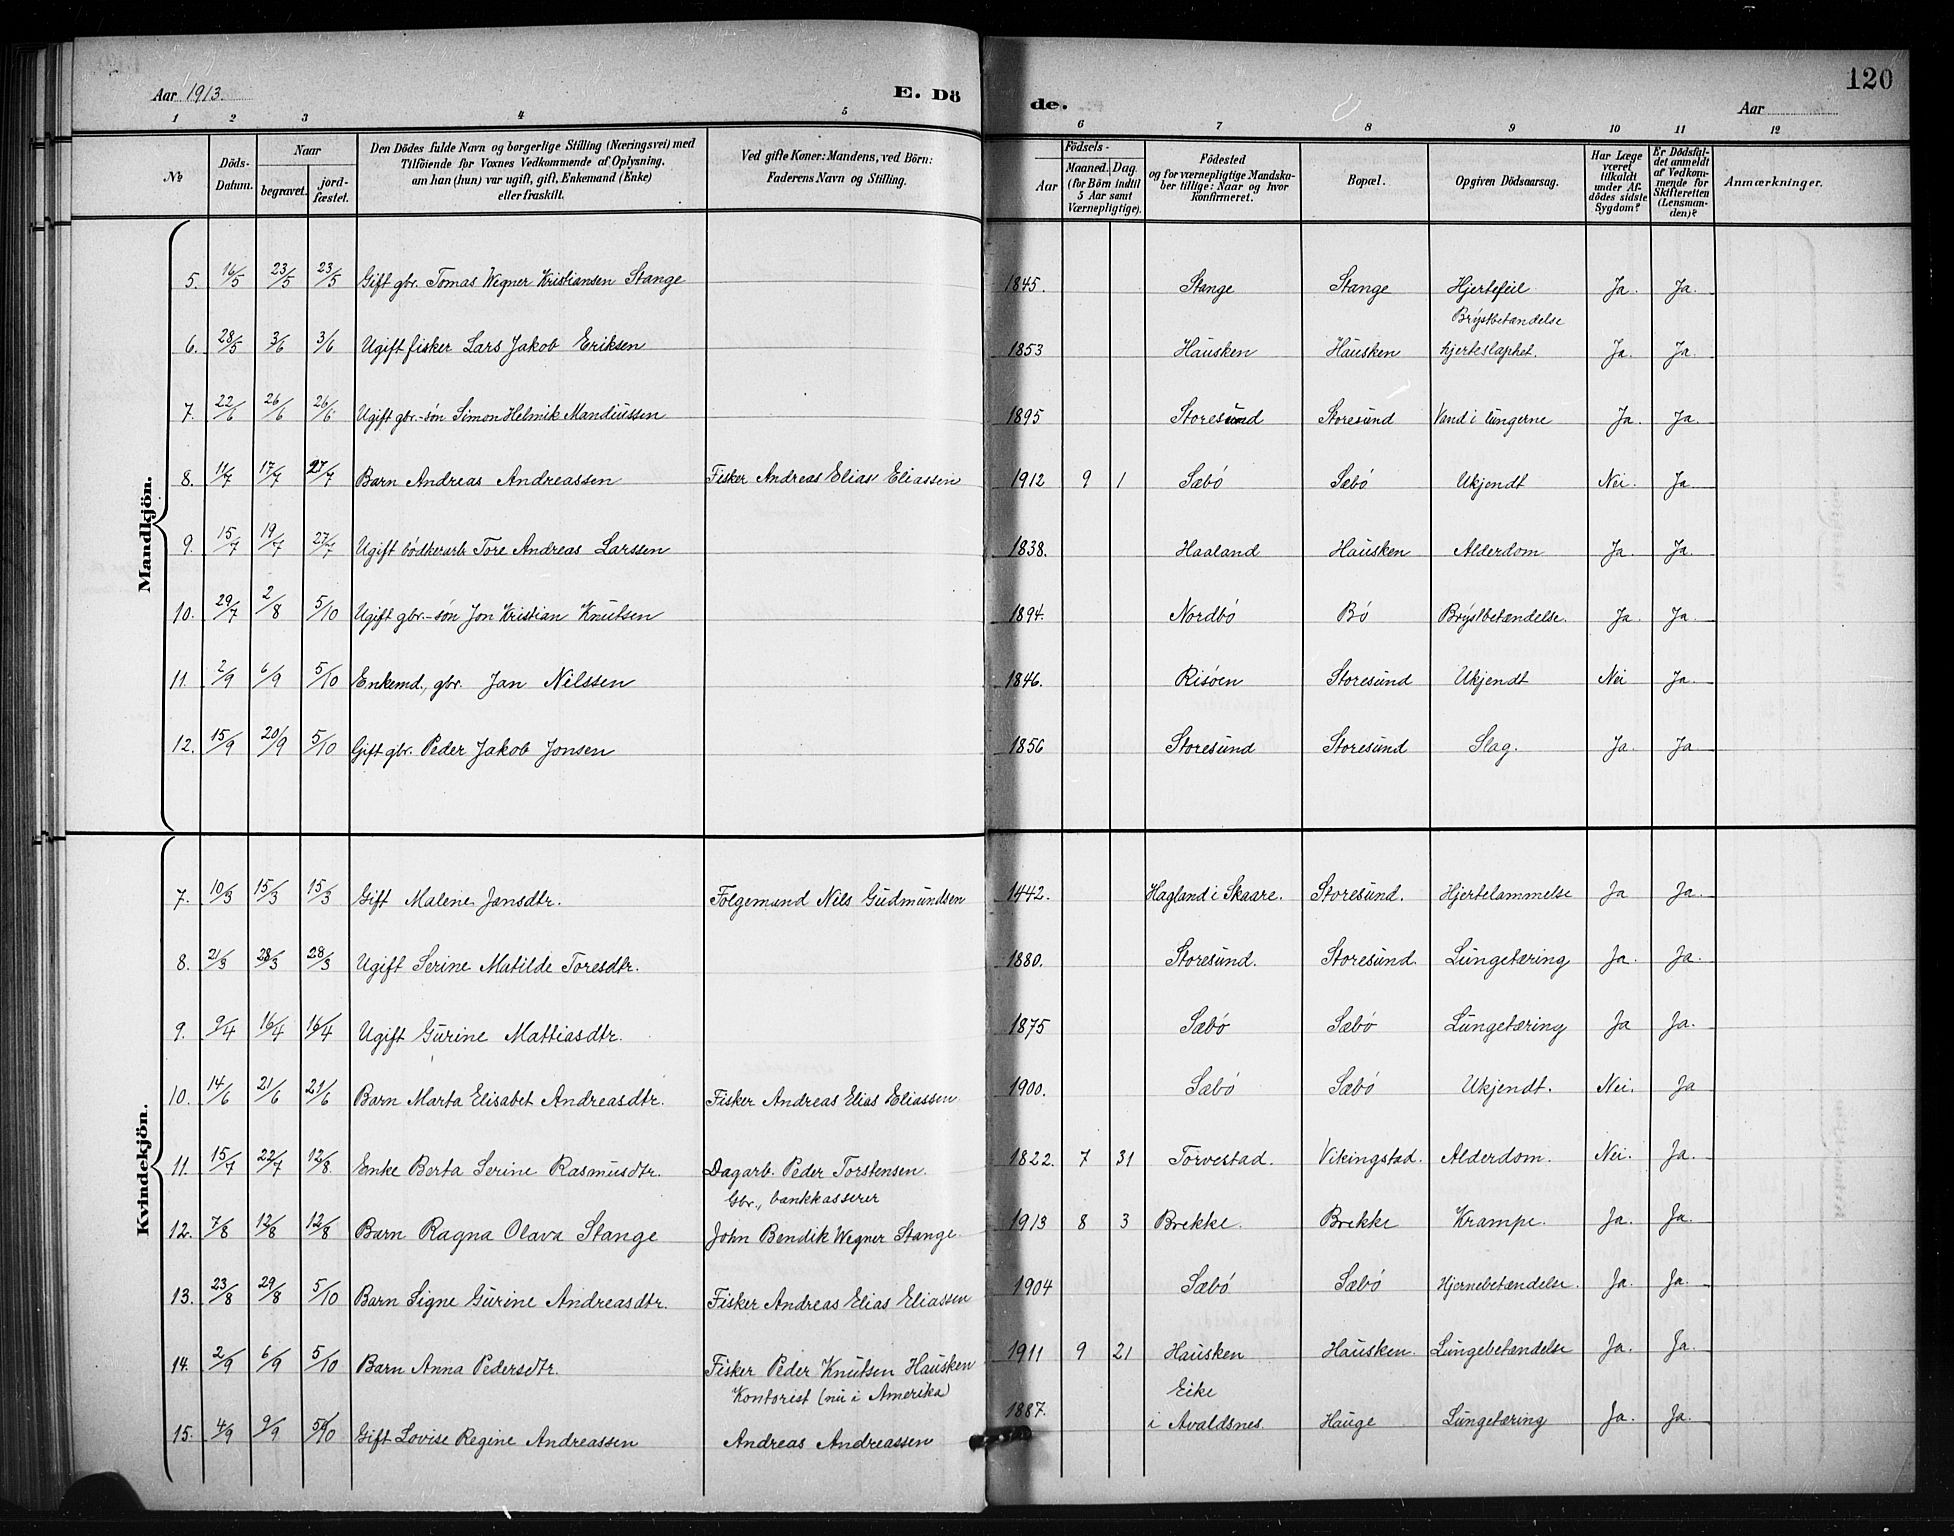 120
Aar 1913. E. Dö de. Aar
1 2 3 4 5 6 7 8 9 10 11 12
№ | Döds-Datum. | Naar begravet. | jord-fæstet. | Den Dödes fulde Navn og borgerlige Stilling (Næringsvei) med Tilföiende for Voxnes Vedkommende af Oplysning, om han (hun) var ugift, gift, Enkemand (Enke) eller fraskilt. | Ved gifte Koner: Mandens, ved Börn: Faderens Navn og Stilling. | Födsels- Aar | Maaned. Dag. (for Börn indtil 5 Aar samt Værnepligtige). | Födested og for værnepligtige Mandskaber tillige: Naar og hvor konfirmeret. | Bopæl. | Opgiven Dödsaarsag. | Har Læge været tilkaldt under Afdödes sidste Sygdom? | Er Dödsfaldet anmeldt af Vedkommende for Skifteretten (Lensmanden)? | Anmærkninger.
Mandkjön.
5. 16/5 23/5 23/5 Gift gbr. Tomas Wegner Kristiansen Stange 1845. Stange Stange Hjertefeil Ja. Ja.
Brystbetændelse
6. 28/5 3/6 3/6 Ugift fisker Lars Jakob Eriksen 1853 Hausken Hausken hjerteslaphet. Ja. Ja.
7. 22/6 26/6 26/6 Ugift gbr.-søn Simon Helmik Mandiussen 1895 Storesund Storesund Vand i lungerne Ja. Ja.
8. 11/7 17/7 27/7 Barn Andreas Andreassen Fisker Andreas Elias Eliassen 1912 9 1 Sæbó Sæbó Ukjendt Nei. Ja
9. 15/7 19/7 27/7 Ugift bódkerarb. Tore Andreas Larssen 1838. Haaland Hausken Alderdom Ja. Ja.
10. 29/7 2/8 5/10 Ugift gbr.-són Jon Kristian Knutsen 1894. Nordbó Bó Brystbetændelse. Ja. Ja.
11. 2/9 6/9 5/10 Enkemd., gbr. Jan Nilssen 1846. Risóen Storesund Ukjendt Nei Ja.
12. 15/9 20/9 5/10 Gift gbr. Peder Jakob Jonsen 1856 Storesund Storesund Slag. Ja. Ja
Kvindekjön.
7. 10/3 15/3 15/3 Gift Malene Jansdtr. Folgemand Nils Gudmundsen 1442. Hagland i Skaare. Storesund. Hjertelammelse Ja Ja.
8. 21/3 28/3 28/3 Ugift Serine Matilde Toresdtr. 1880. Storesund. Storesund. Lungetæring Ja. Ja.
9. 9/4 16/4 16/4 Ugift Gurine Mattiasdtr. 1875 Sæbó Sæbó Lungetæring Ja Ja.
10. 14/6 21/6 21/6 Barn Marta Elisabet Andreasdtr. Fisker Andreas Elias Eliassen 1900. Sæbó Sæbó Ukjendt. Nei. Ja
11. 15/7 22/7 12/8 Enke Berta Serine Rasmusdtr. Dagarb. Peder Torstensen. 1822. 7 31 Torvestad. Vikingstad. Alderdom. Nei. Ja.
Gbr., bankkasserer
12. 7/8 12/8 12/8 Barn Ragna Olava Stange John Bendik Wegner Stange. 1913 8 3 Brekke. Brekke Krampe. Ja. Ja.
13. 23/8 29/8 5/10 Barn Signe Gurine Andreasdtr. Fisker Andreas Elias Eliassen 1904 Sæbó Sæbó Hjernebetændelse. Ja. Ja.
14. 2/9 6/9 5/10 Barn Anna Pedersdtr. Fisker Peder Knutsen Hausken 1911 9 21 Hausken Hausken. Lungebetændelse Ja. Ja.
Kontorist (nu i Amerika) Eike
15. 4/9 9/9 5/10 Gift Lovise Regine Andreassen Andreas Andreassen 1887. i Avaldsnes. Hauge Lungetæring Ja. Ja.